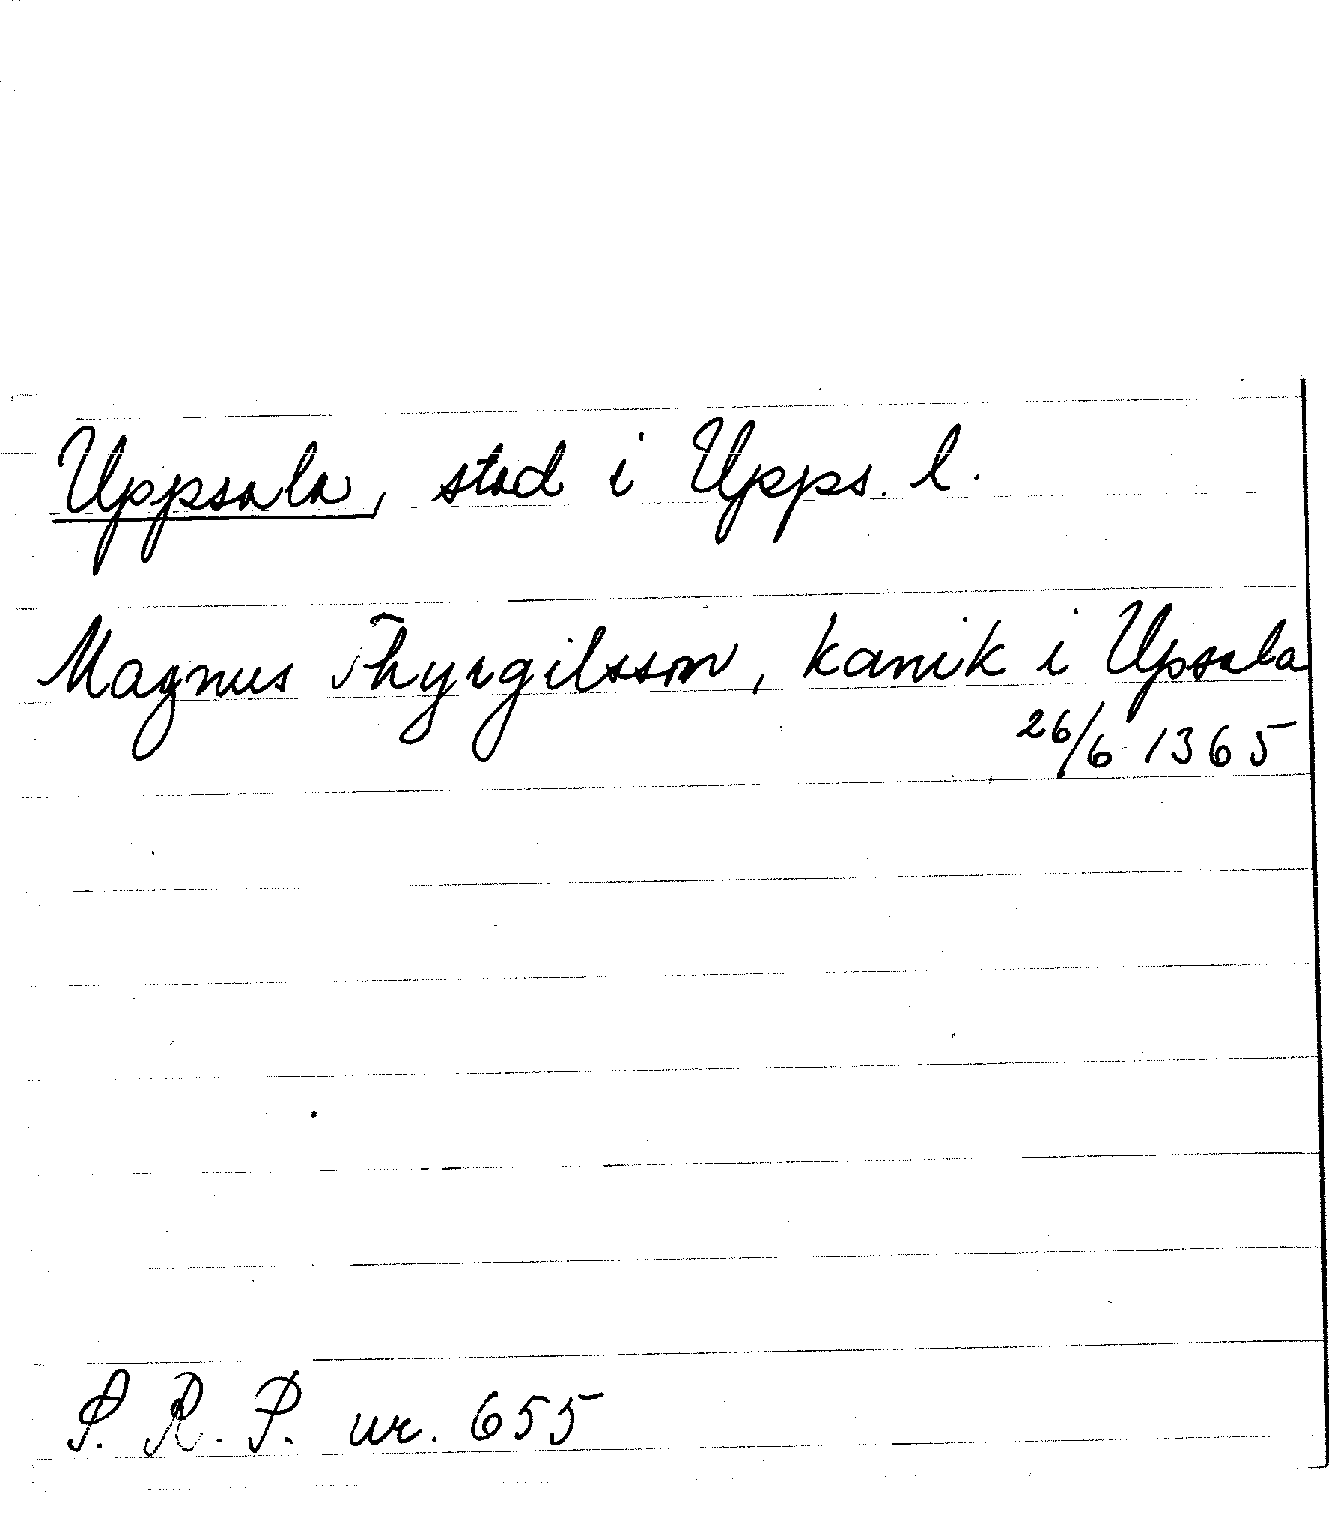 Uppsala, stad i Upps. l.
Magnus Thyrgilsson, kanik i Upsala
26/6 1365
S. R. P. nr. 655